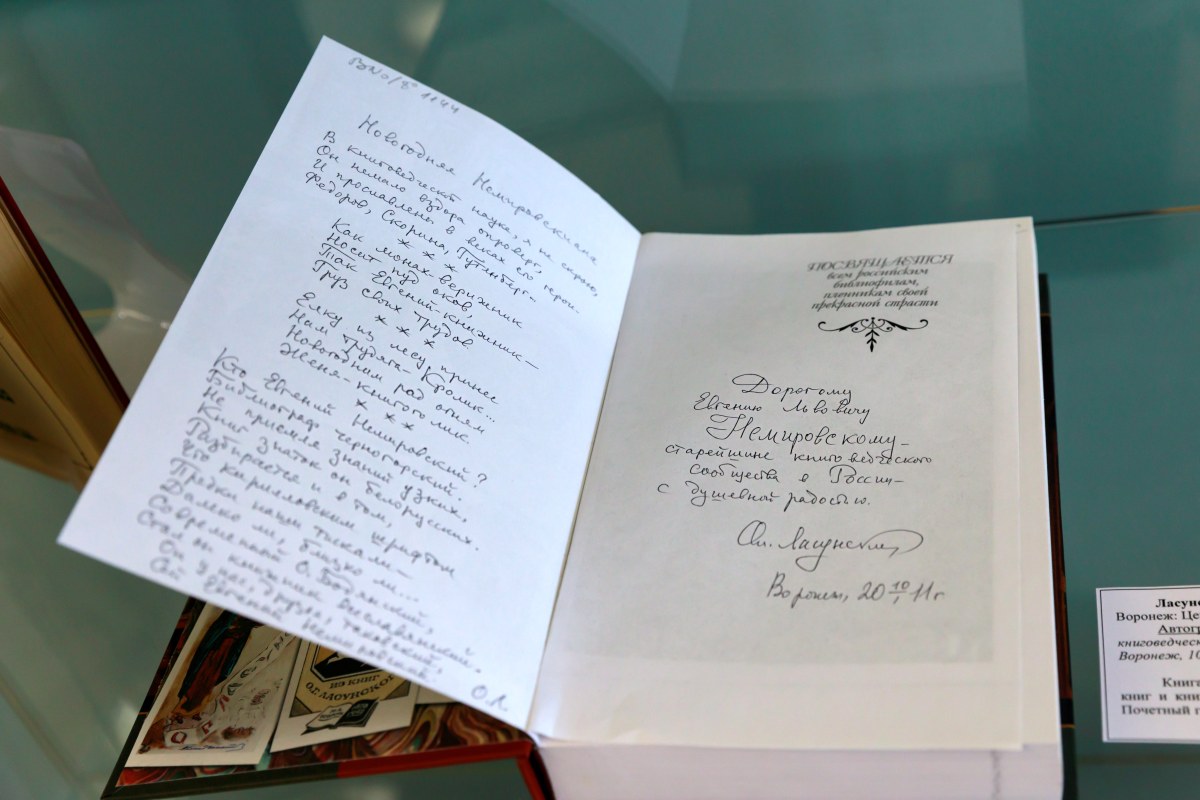 1144
Новогодняя Немировскиана
В книговедческ наука, я не скрою,
Он немало вздора опроверг,
И прославлены в веках его герои –
Федоров, Скорина, Гутенберг –
* * *
Как монах-верижник
Носит пуд оков,
Так Евгений-книжник –
Груз своих трудов.
* * *
Елку из лесу принес
Нам трудяга-Кролик...
Новогодним рад огням
Женя-книгоголик.
* * *
Кто Евгений Немировский?
Библиограф черногорский.
Не приемля знаний узких,
Книг знаток он белорусских.
Разбирается и в том,
Что кирилловским шрифтом
Предки наши тискали –
Далеко ли, близко ли...
Современный О. Бодянский,
Стал он книжник всеславянский.
Он у нас, друзья, таковский,
Сей Евгений Немировский!
О.Л.
ПОСВЯЩАЕТСЯ
всем российским
библиофилам,
пленникам своей
прекрасной страсти
Дорогому
Евгению Львовичу
Немировскому –
старейшине книговедческого
сообщества в России –
с душевной радостью.
Ол. Ласунский
Воронеж, 20 10/I 11 г
ИЗ КНИГ
О.Г. ЛАСУНСКОГО
Ласунс
Воронеж: Це
Автогр
книговедческ
Воронеж, 10
Книга
книг и кни
Почетный г